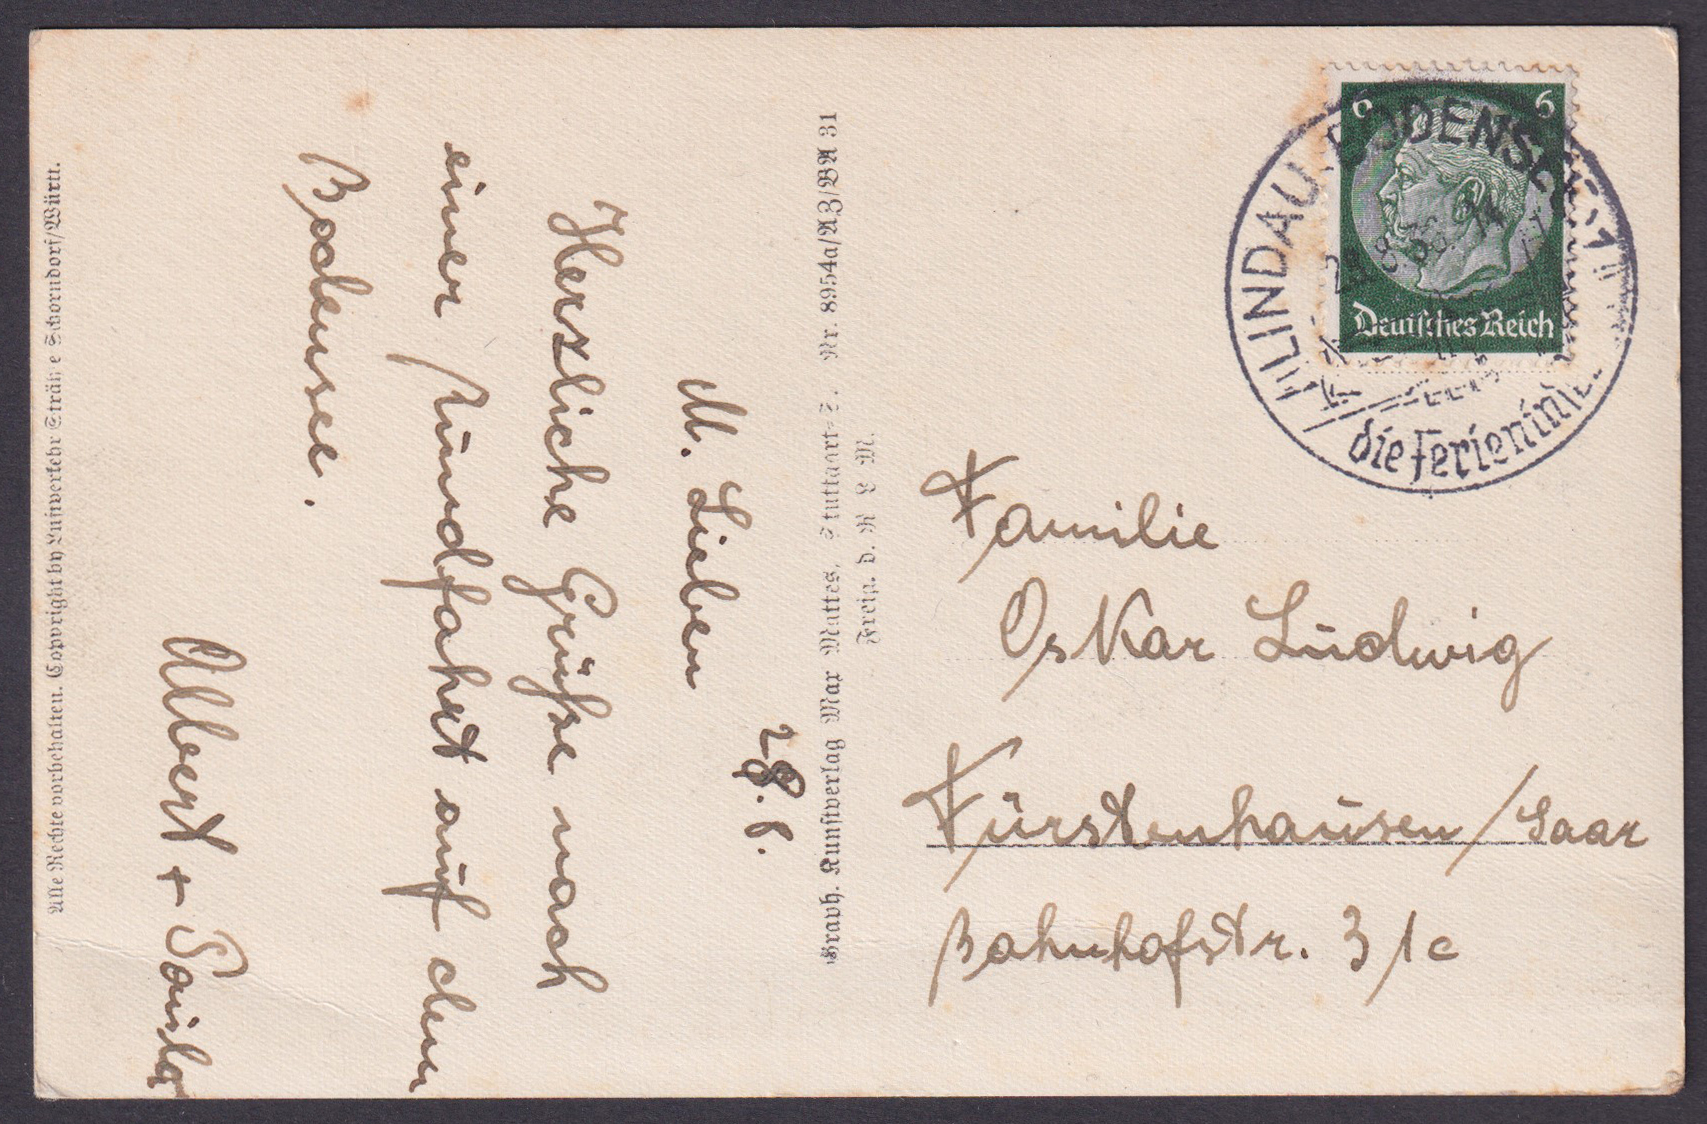 Alle Rechte vorbehalten. Copyright by Luftverkehr Strähle Schorndorf/Württ.
28. 6.
M. Lieben
Herzliche Grüße nach
einer Rundfahrt auf dem
Bodensee.
Albert +
Graph. Kunstverlag Max Mattes, Stuttgart- Nr. 8954a/AZ/BA 31
Freig. d. R L M.
6 6
Deutsches Reich
LINDAU BODENSEE
die Ferieninsel
Familie
Oskar Ludwig
Fürstenhausen/Saar
Bahnhofstr. 31c